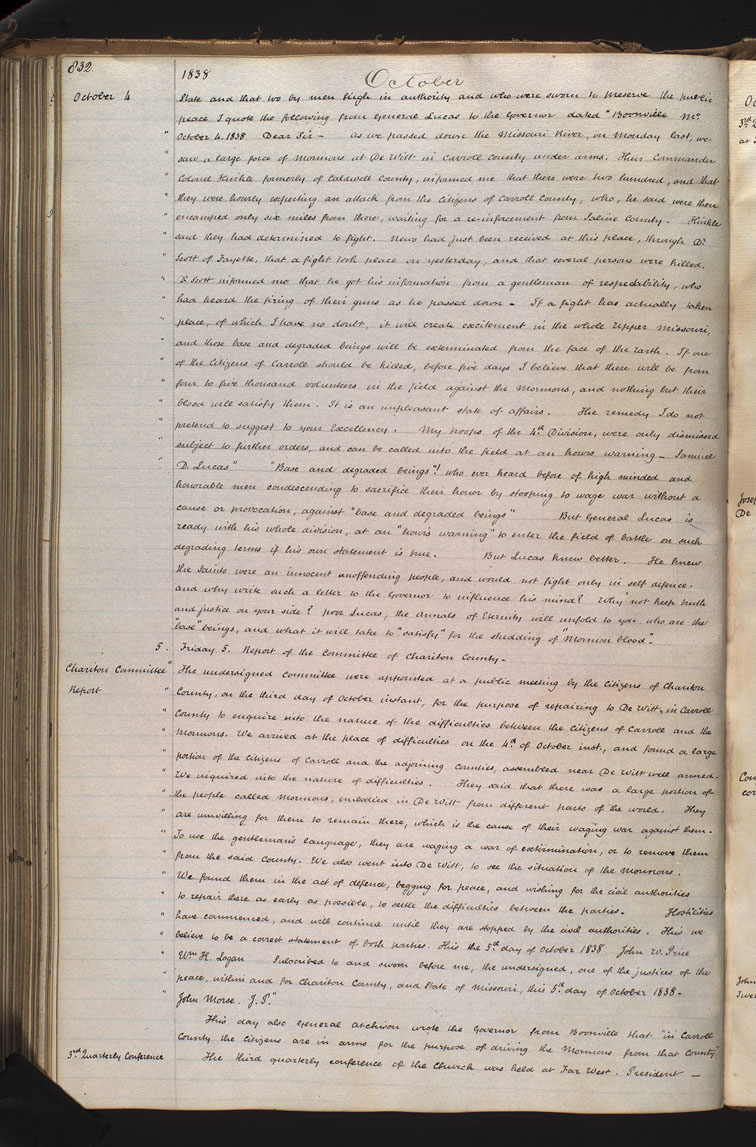 832
1838
October
October 4
State and that too by men high in authority and who were sworn to preserve the public
peace I quote the following from General Lucas to the Governor dated "Boonville Mo
October 4. 1838 Dear Sir — as we passed down the Missouri River, on Monday last, we
saw a large force of Mormons at De Witt in Carroll County under arms. Their Commander
Colonel Hinkle formerly of Caldwell County, informed me that there were two hundred, and that
they were hourly expecting an attack from the citizens of Carroll County, who, he said were then
encamped only six miles from there, waiting for a re-inforcement from Saline County. Hinkle
said they had determined to fight. News had just been received at this place, through Dr
Scott of Fayette, that a fight took place on yesterday, and that several persons were killed.
Dr Scott informed me that he got his information from a gentleman of respectability, who
had heard the firing of their guns as he passed down — If a fight has actually taken
place, of which I have no doubt, it will create excitement in the whole Upper Missouri,
and those base and degraded beings will be exterminated from the face of the Earth. If one
of the citizens of Carroll should be killed, before five days I believe that there will be from
four to five thousand volunteers in the field against the Mormons, and nothing but their
blood will satisfy them. It is an unpleasant state of affairs. The remedy I do not
pretend to suggest to your Excellency. My troops of the 4th Division, were only dismissed
subject to further orders, and can be called into the field at an hours warning — Samuel
D. Lucas" "Base and degraded beings"! who ever heard before of high minded and
honorable men condescending to sacrifice their honor by stooping to wage war without a
cause or provocation, against "base and degraded beings" But General Lucas is
ready with his whole division, at an "hour's warning" to enter the field of battle on such
degrading terms if his own statement is true. But Lucas knew better. He knew
the Saints were an innocent unoffending people, and would not fight only in self defence.
and why write such a letter to the Governor to influence his mind? Why not keep truth
and justice on your side? poor Lucas, the annals of Eternity will unfold to you who are the
"base" beings, and what it will take to "satisfy" for the shedding of "Mormon blood".
5. Friday 5. Report of the Committee of Chariton County.
Chariton Committee
Report
The undersigned committee were appointed at a public meeting by the citizens of Chariton
County, on the third day of October instant, for the purpose of repairing to De Witt, in Carroll
County to enquire into the nature of the difficulties between the citizens of Carroll and the
Mormons. We arrived at the place of difficulties on the 4th of October inst., and found a large
portion of the citizens of Carroll and the adjoining Counties, assembled near De Witt well armed.
We inquired into the nature of difficulties. They said that there was a large portion of
the people called Mormons, embodied in De Witt from different parts of the world. They
are unwilling for them to remain there, which is the cause of their waging war against them.
To use the gentleman's language, they are waging a war of extermination, or to remove them
from the said County. We also went into De Witt, to see the situation of the Mormons.
We found them in the act of defence, begging for peace, and wishing for the civil authorities
to repair there as early as possible, to settle the difficulties between the parties. Hostilities
have commenced, and will continue until they are stopped by the civil authorities. This we
believe to be a correct statement of both parties. This the 5th day of October 1838 John W. Price
Wm H. Logan Subscribed to and sworn before me, the undersigned, one of the justices of the
peace, within and for Chariton County, and State of Missouri, this 5th day of October 1838.
John Morse. J.P."
This day also General Atchison wrote the Governor from Boonville that "in Carroll
County the citizens are in arms for the purpose of driving the Mormons from that County"
3rd Quarterly Conference
The third quarterly conference of the Church was held at Far West. President —